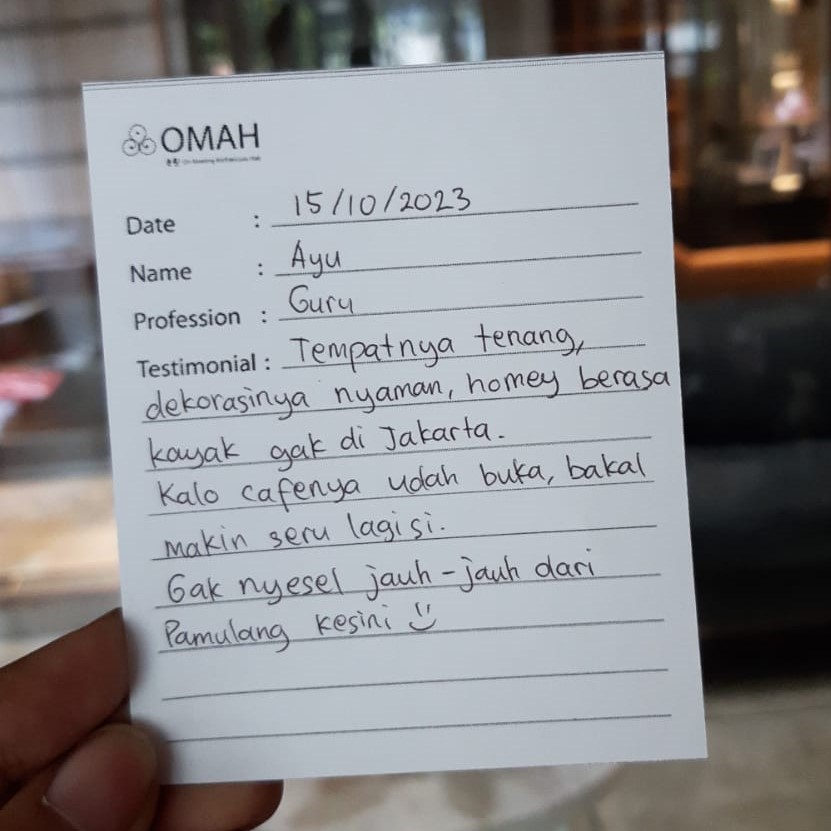 OMAH
Date : 15/10/2023
Name : Ayu
Profession : Guru
Testimonial : Tempatnya tenang,
dekorasinya nyaman, homey berasa
kayak gak di Jakarta.
Kalo cafenya udah buka, bakal
makin seru lagi si.
Gak nyesel jauh-jauh dari
Pamulang kesini